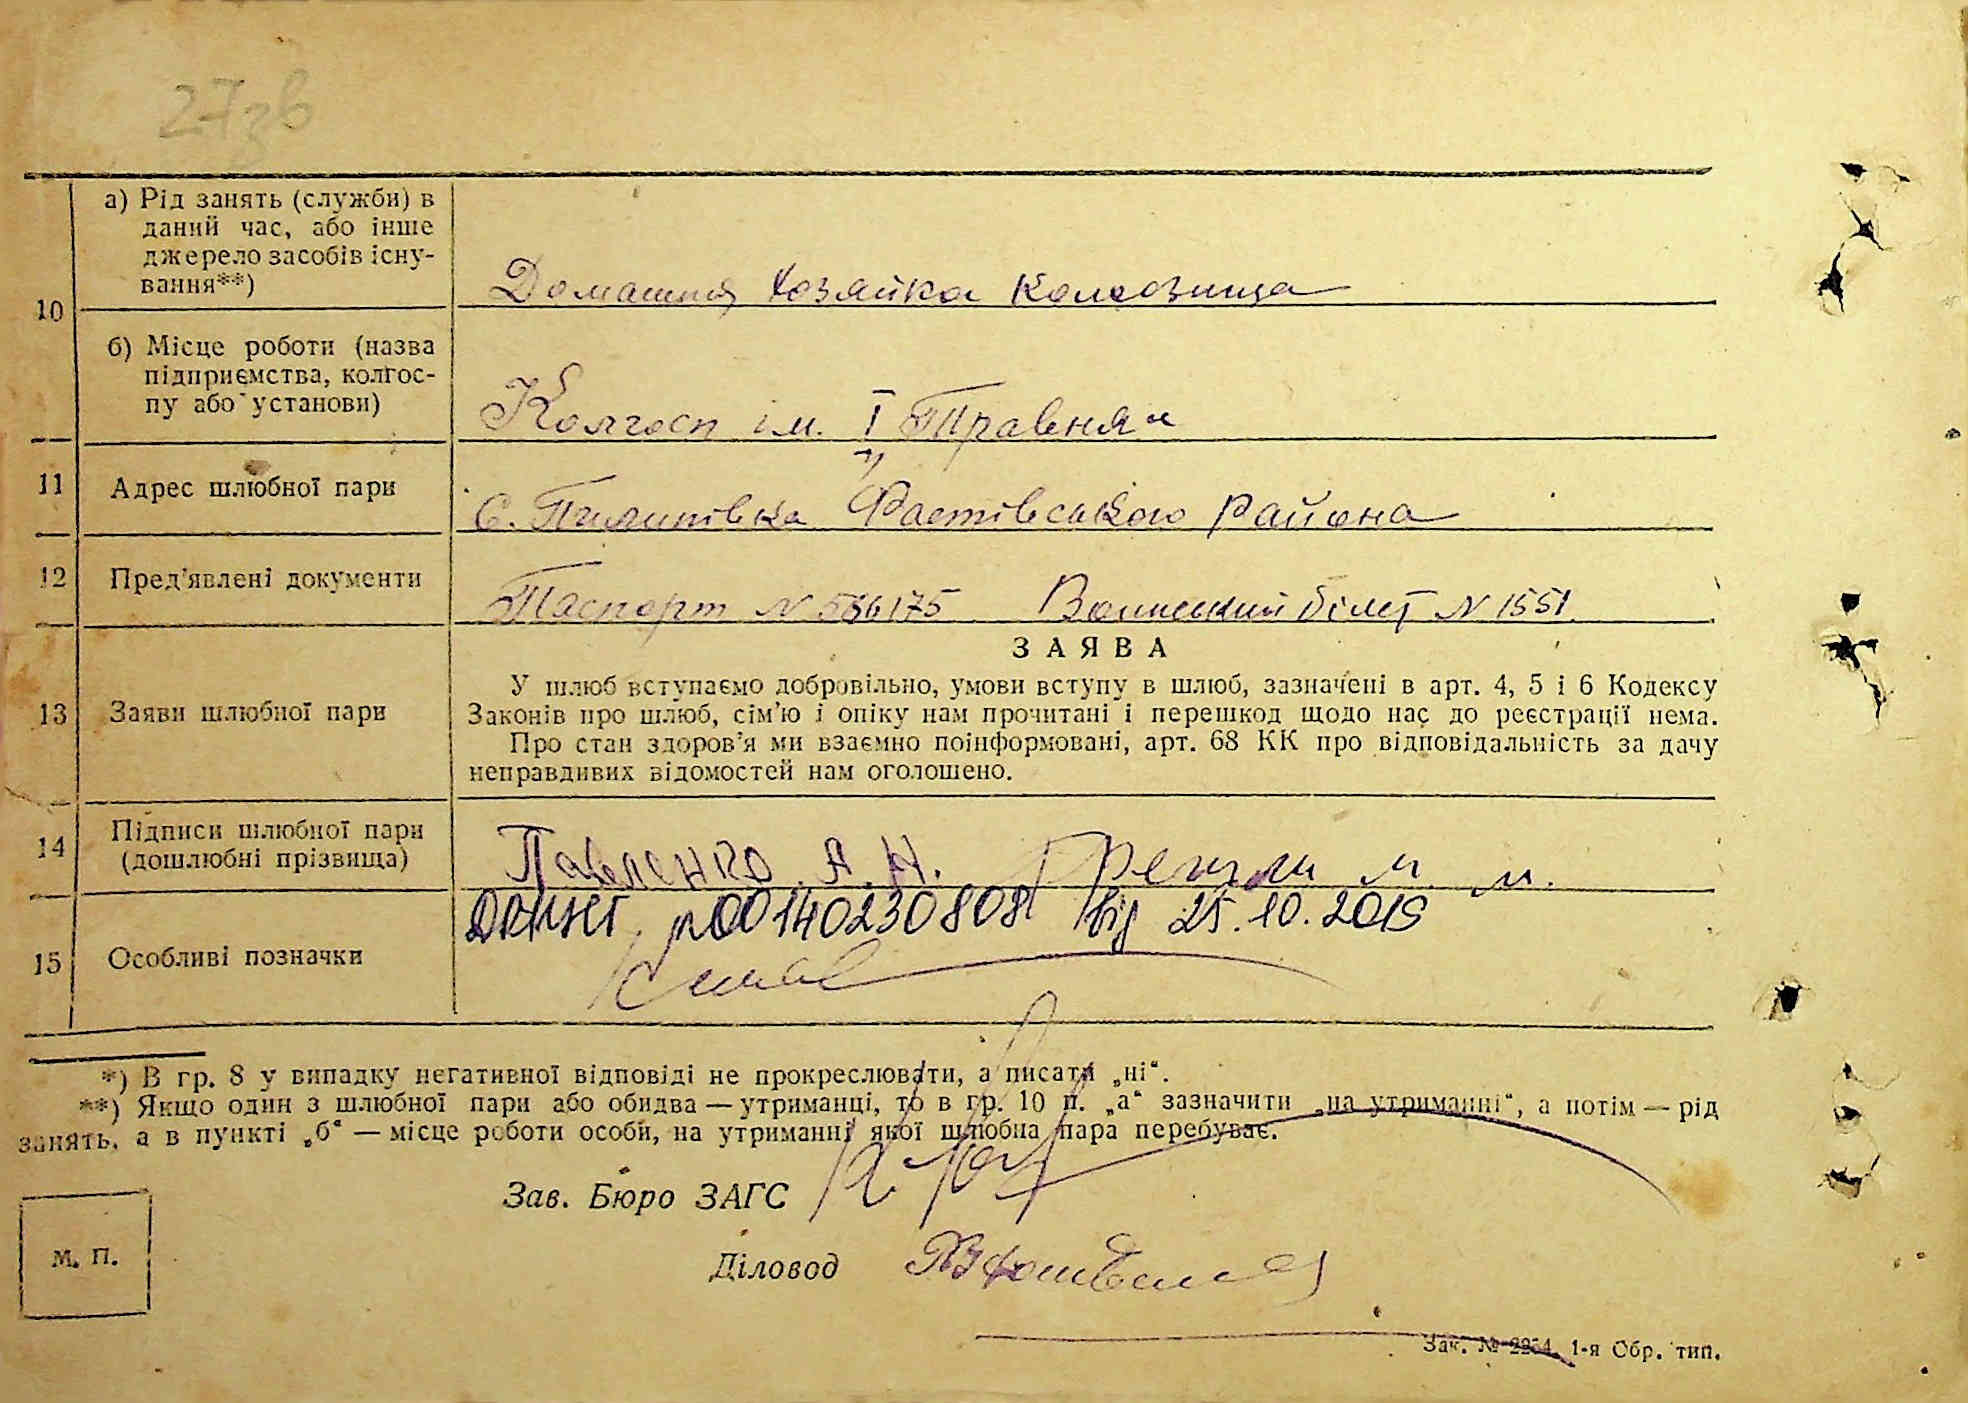 27зв
а) Рід занять (служби) в
даний час, або інше
джерело засобів існу-
вання**)
Домашня хозяйка
10
б) Місце роботи (назва
підприємства, колгос-
пу або установи)
Колгосп ім. "І Травня"
11 Адрес шлюбної пари С. Пилипівка Фастівського Района
12 Пред'явлені документи Паспорт № 566175 Воинський білет № 1551
ЗАЯВА
13 Заяви шлюбної пари
У шлюб вступаємо добровільно, умови вступу в шлюб, зазначені в арт. 4, 5 і 6 Кодексу
Законів про шлюб, сім'ю і опіку нам прочитані і перешкод щодо нас до реєстрації нема.
Про стан здоров'я ми взаємно поінформовані, арт. 68 КК про відповідальність за дачу
неправдивих відомостей нам оголошено.
14 Підписи шлюбної пари
(дошлюбні прізвища)
Павленко А. Н.
00140230808 від 25.10.2019
15 Особливі позначки
*) В гр. 8 у випадку негативної відповіді не прокреслювати, а писати „ні“.
**) Якщо один з шлюбної пари або обидва — утриманці, то в гр. 10 п. „а“ зазначити „на утриманні“, а потім — рід
занять, а в пункті „б“ — місце роботи особи, на утриманні якої шлюбна пара перебуває.
Зав. Бюро ЗАГС
М. П.
Діловод
Зак. № 2254. 1-я Обр. тип.